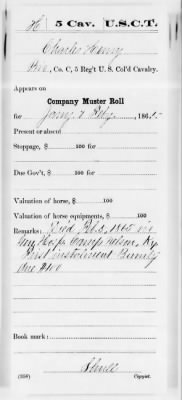 H | 5 Cav. | U.S.C.T.
Charles Henry
Pvt., Co. C, 5 Reg't U. S. Col'd Cavalry.
Appears on
Company Muster Roll
for Jany & Feby, 1865.
Present or absent
Stoppage, $ 100 for
Due Gov't, $ 100 for
Valuation of horse, $ 100
Valuation of horse equipments, $ 100
Remarks: Died Feb. 1865 in
Gen Hosp. Camp Nelson, Ky
First instalment Bounty
due $100
Book mark:
(358) Copyist.